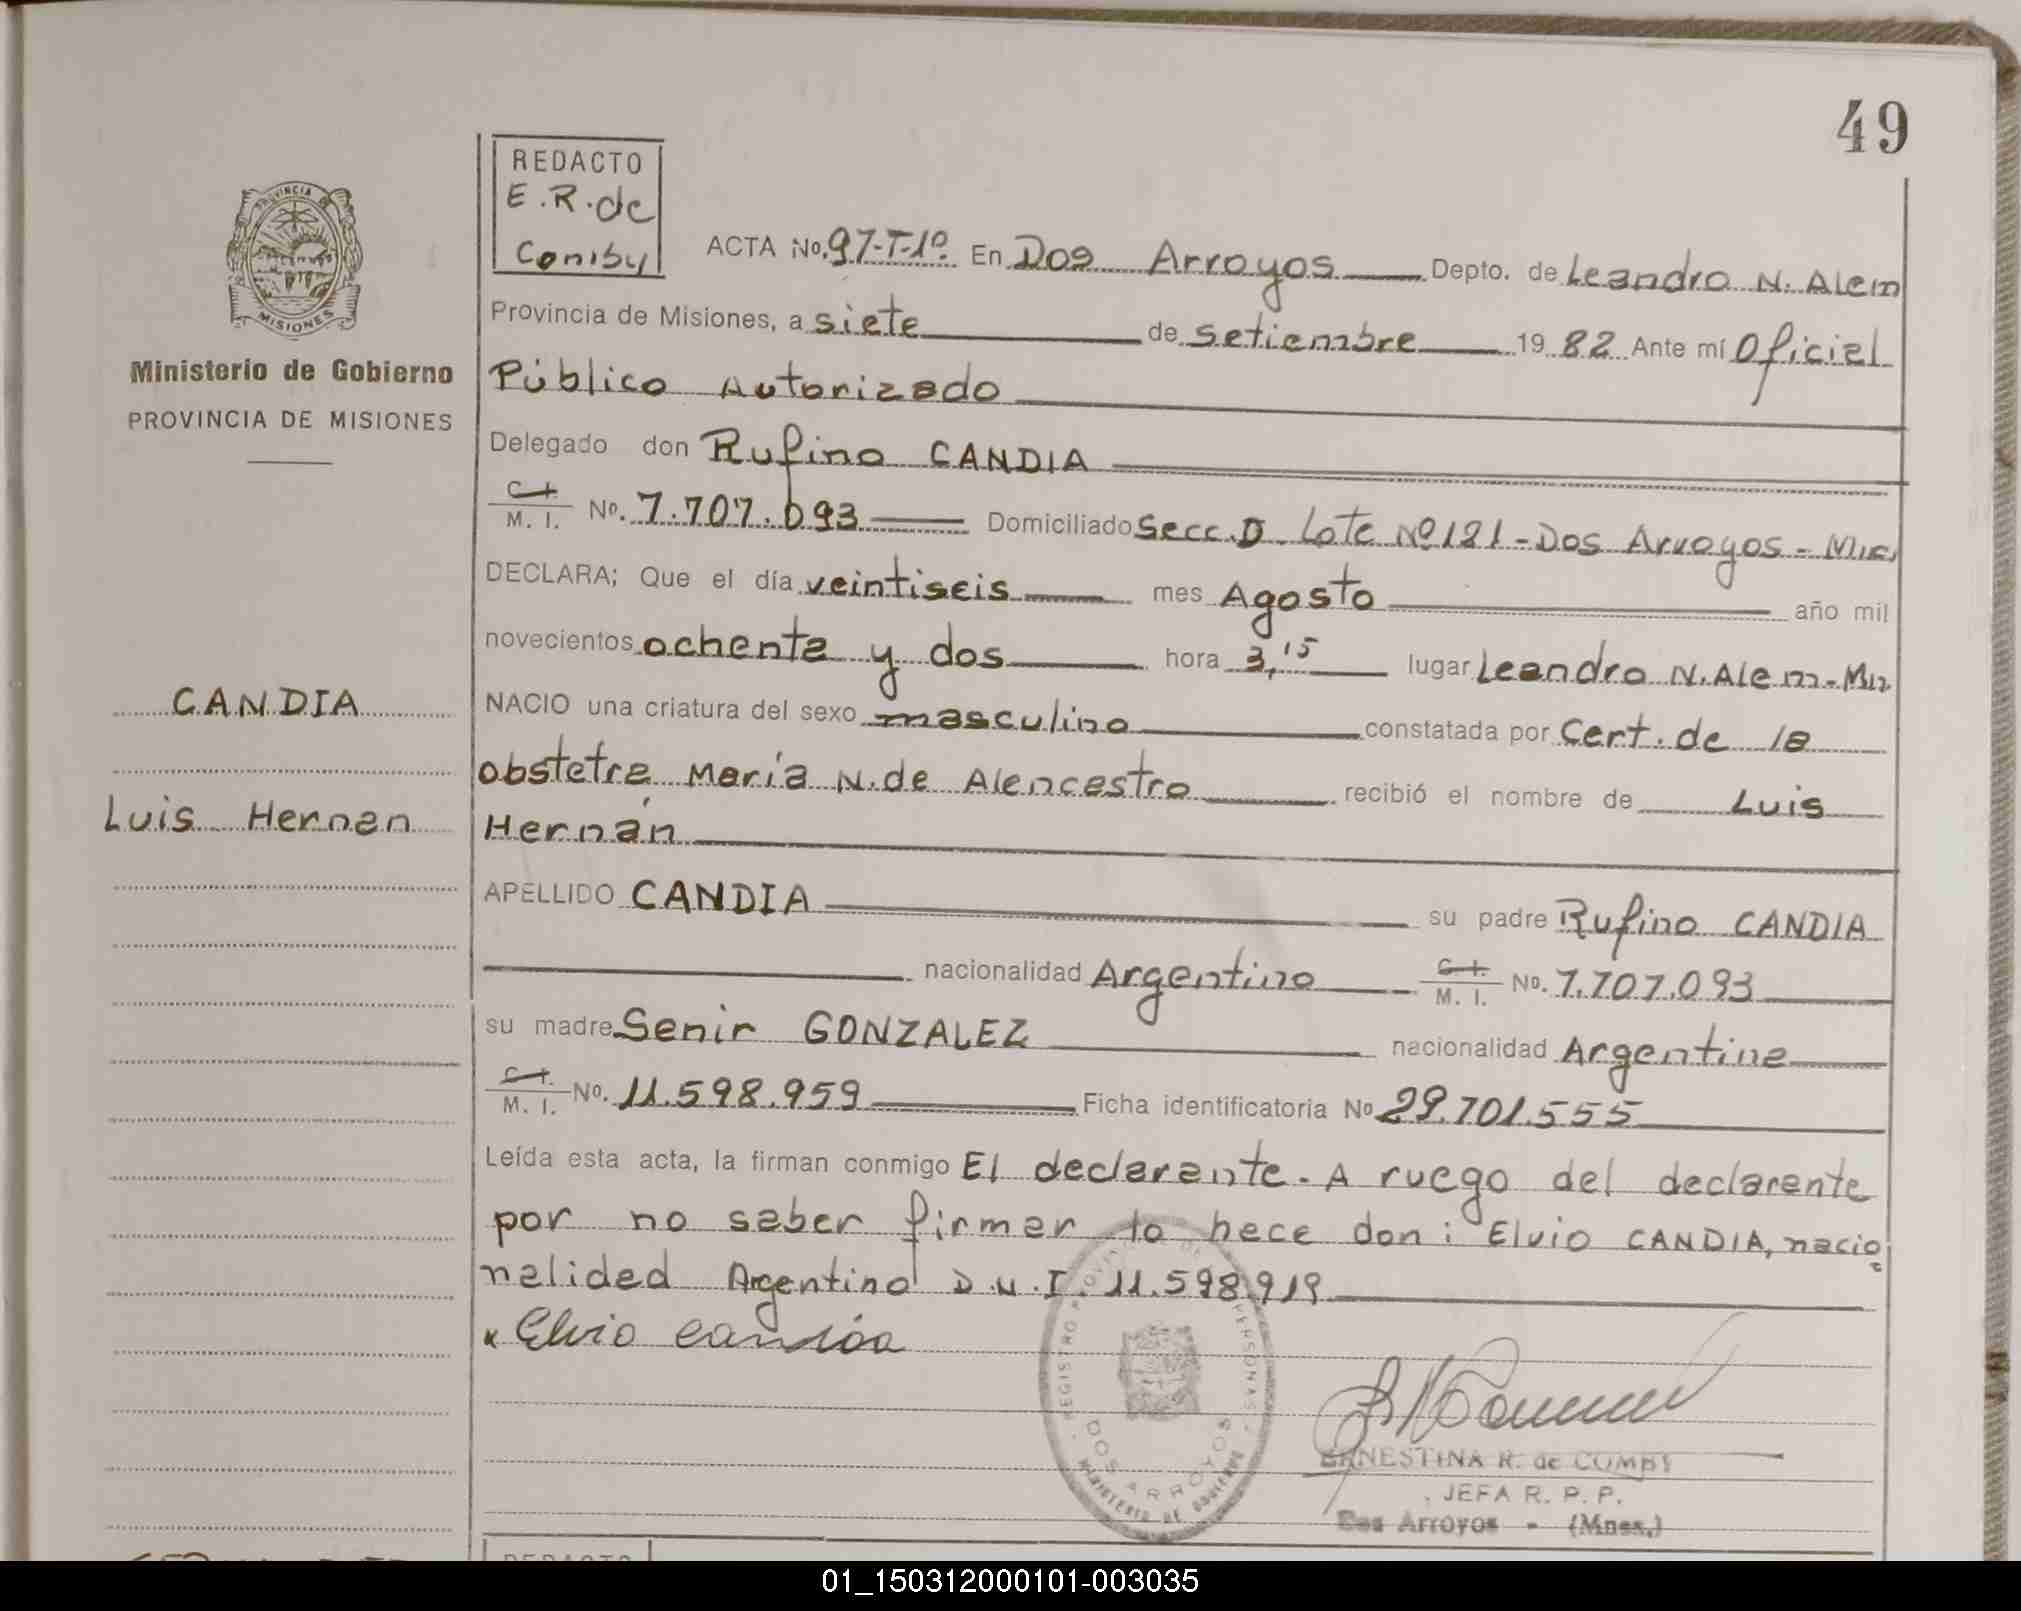 49
REDACTO
E.R. de
Comby
PROVINCIA
MISIONES
Ministerio de Gobierno
PROVINCIA DE MISIONES
ACTA No. 97-T-1º. En Dos Arroyos Depto. de Leandro N. Alem
Provincia de Misiones, a siete de setiembre 1982 Ante mí Oficial
Público Autorizado
Delegado don Rufino CANDIA
C. I. M. I. No. 7.707.093 Domiciliado Secc. D Lote Nº 121 - Dos Arroyos - Mis
DECLARA; Que el día veintiseis mes Agosto año mil
novecientos ochenta y dos hora 3,15 lugar Leandro N. Alem - Mis
CANDIA
NACIO una criatura del sexo masculino constatada por Cert. de la
obstetra María N. de Alencastro recibió el nombre de Luis
Luis Hernan
Hernán
APELLIDO CANDIA su padre Rufino CANDIA
nacionalidad Argentino C. I. M. I. No. 7.707.093
su madre Senir GONZALEZ nacionalidad Argentina
C. I. M. I. No. 11.598.959 Ficha identificatoria No 29.701.555
Leída esta acta, la firman conmigo El declarante. A ruego del declarante
por no saber firmar lo hace don: Elvio CANDIA, nacio
nalidad Argentino D.N.I. 11.598.919
x Elvio Candia
REGISTRO PROVINCIAL DE PERSONAS
DOS ARROYOS
MINISTERIO DE GOBIERNO
ERNESTINA R. de COMBY
JEFA R. P. P.
Dos Arroyos - (Mnes.)
REDACTO
01_150312000101-003035